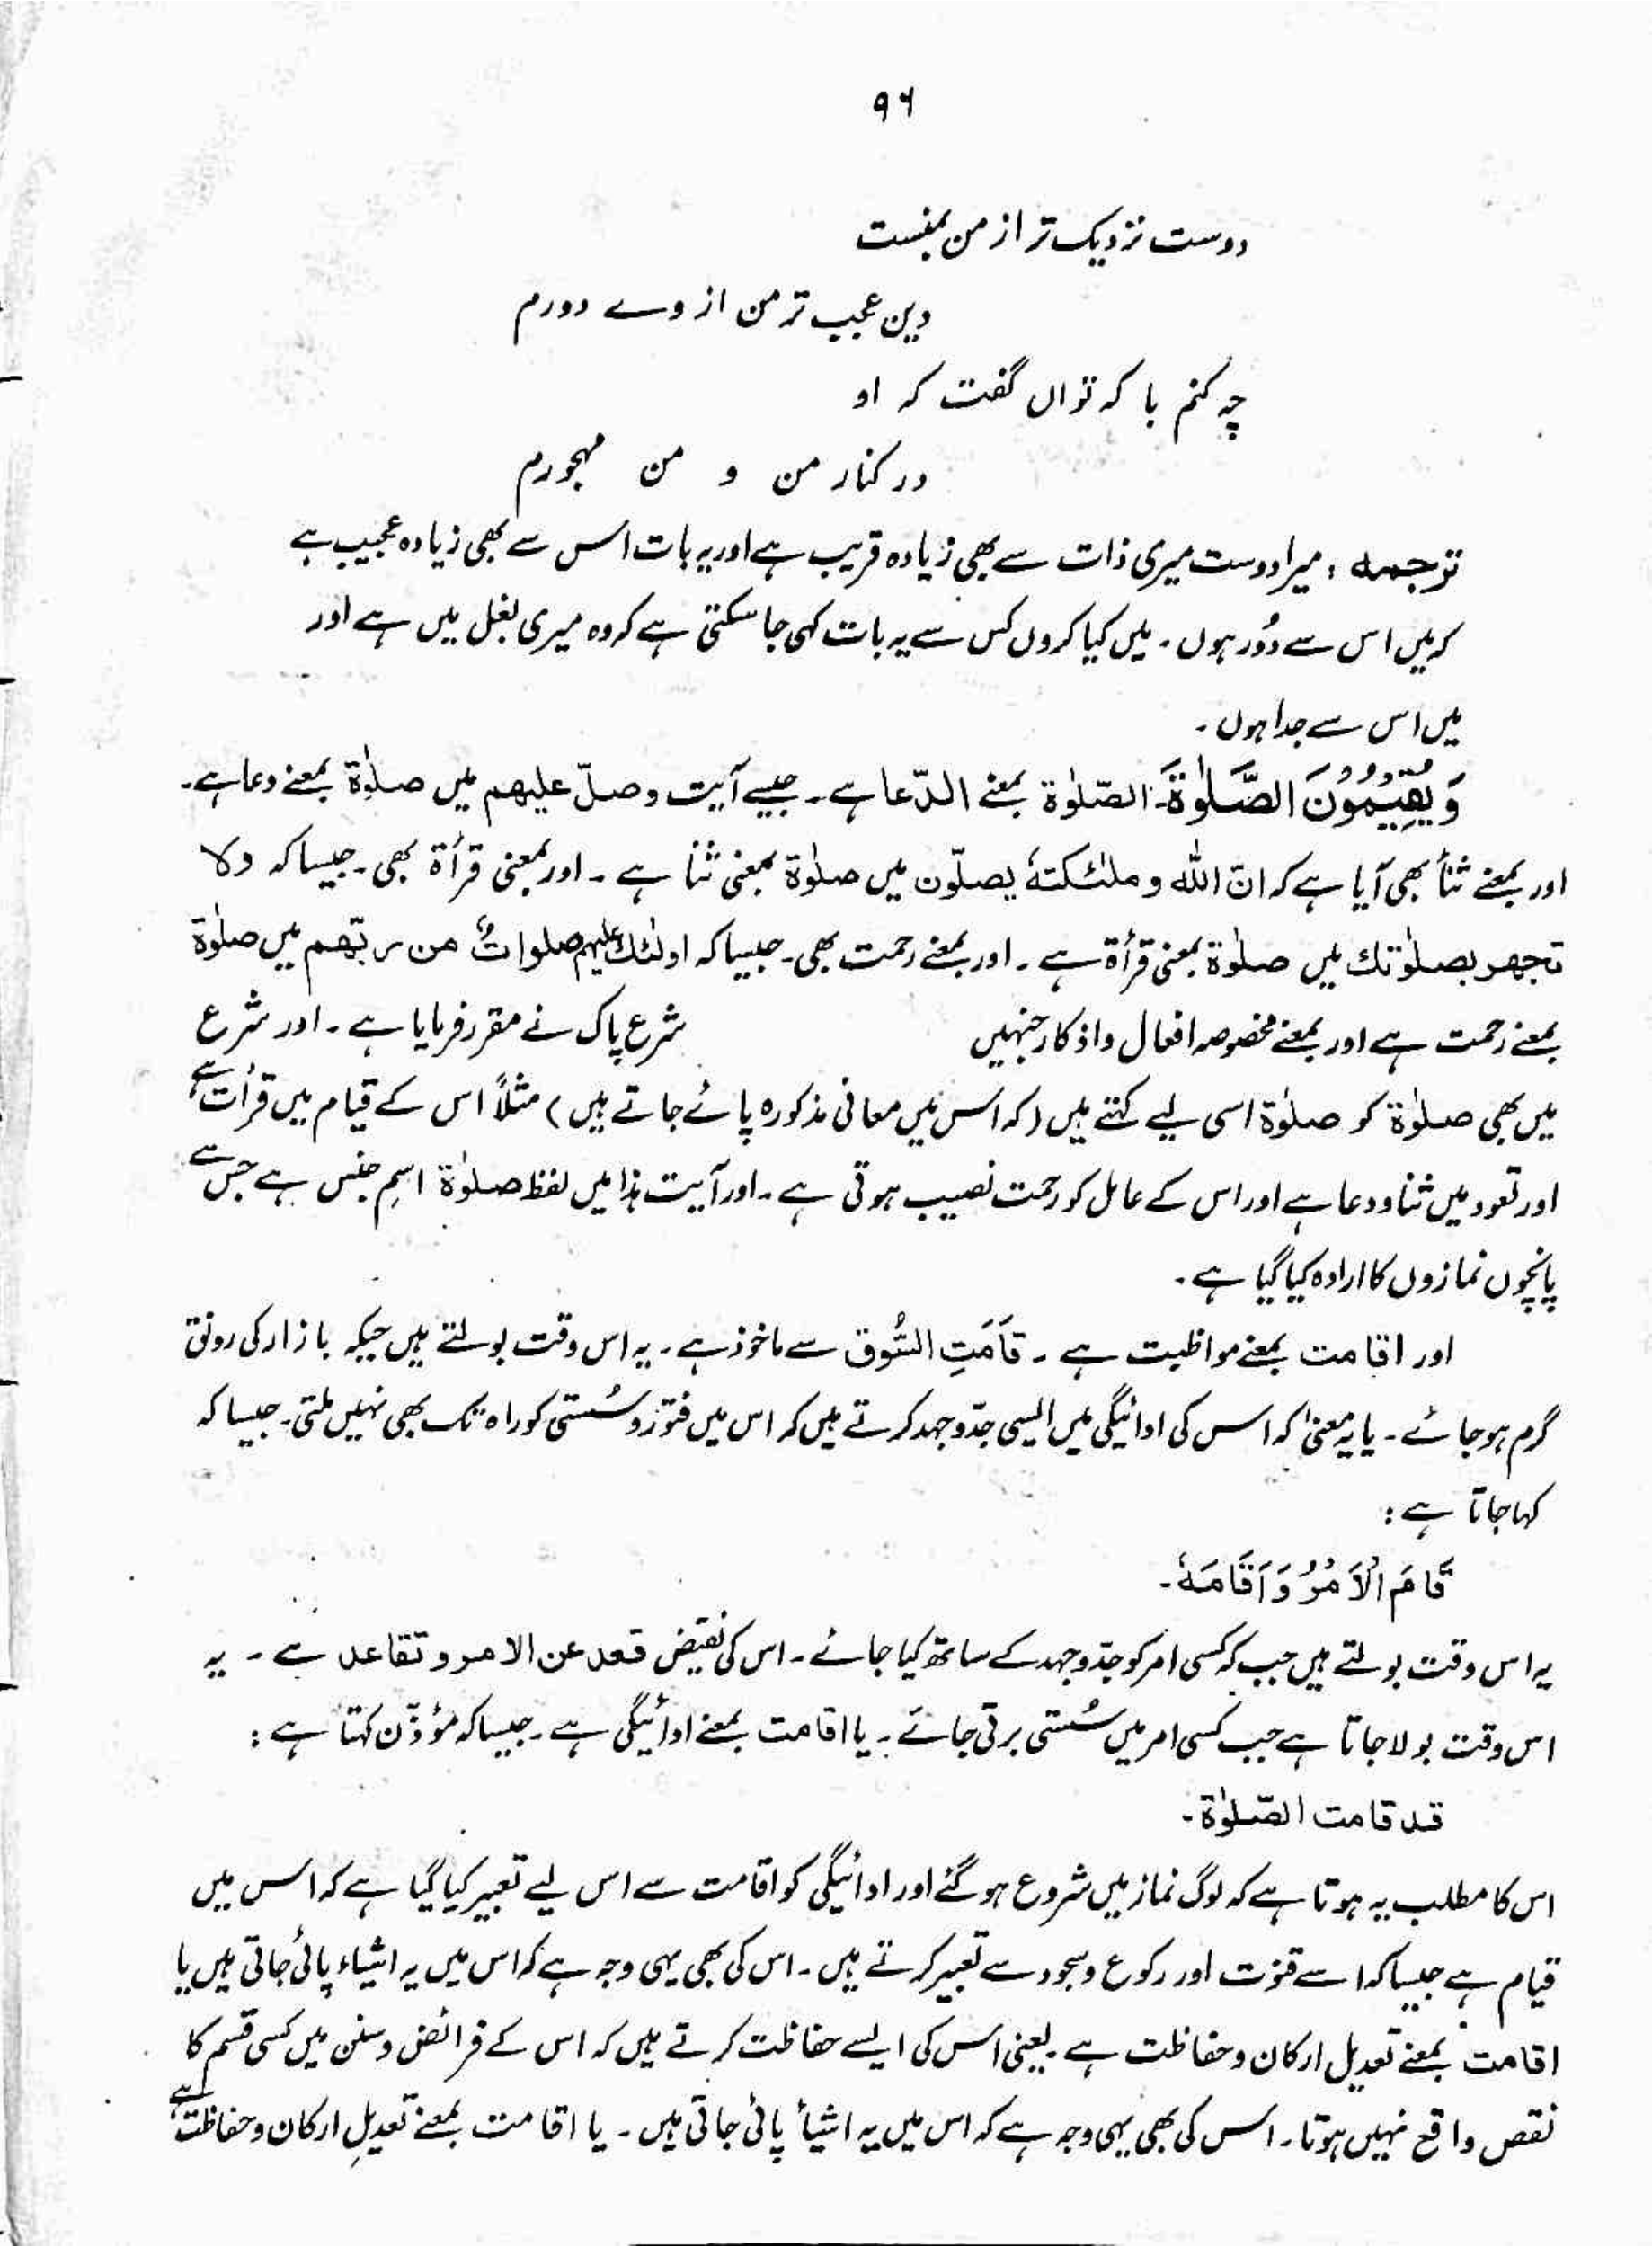 ۹۶
دوست نزدیک تر از من بمنست
وین عجیب تر من از وے دورم
چہ کنم با کہ تواں گفت کہ او
در کنار من و من مہجورم
ترجمہ : میرا دوست میری ذات سے بھی زیادہ قریب ہے اور یہ بات اس سے بھی زیادہ عجیب ہے
کہ میں اس سے دُور ہوں ۔ میں کیا کروں کس سے یہ بات کہی جا سکتی ہے کہ وہ میری بغل میں ہے اور
میں اس سے جدا ہوں ۔
وَ یُقِیْمُوْنَ الصَّلٰوۃَ۔ الصّلوٰۃ بمعنے الدّعا ہے ۔ جیسے آیت وصلّ علیھم میں صلوٰۃ بمعنے دعا ہے۔
اور بمعنے ثنأ بھی آیا ہے کہ انّ اللّٰہ و ملٰئکتہٗ یصلّون میں صلوٰۃ بمعنی ثنا ہے ۔ اور بمعنی قرأۃ بھی ۔ جیسا کہ ولا
تجھر بصلوٰتك میں صلوٰۃ بمعنی قرأۃ ہے ۔ اور بمعنے رحمت بھی۔ جیسا کہ اولٰئك علیہم صلواتٌ من ربّھم میں صلوٰۃ
بمعنے رحمت ہے اور بمعنے مخصوصہ افعال و اذکار جنہیں شرع پاک نے مقرر فرمایا ہے ۔ اور شرع
میں بھی صلوٰۃ کو صلوٰۃ اسی لیے کہتے ہیں (کہ اس میں معانی مذکورہ پائے جاتے ہیں) مثلاً اس کے قیام میں قرأت ہے
اور قعود میں ثنا و دعا ہے اور اس کے عامل کو رحمت نصیب ہوتی ہے ۔ اور آیت ہذا میں لفظ صلوٰۃ اسمِ جنس ہے جس سے
پانچوں نمازوں کا ارادہ کیا گیا ہے ۔
اور اقامت بمعنے مواظبت ہے ۔ قَامَتِ السُّوق سے ماخوذ ہے ۔ یہ اس وقت بولتے ہیں جبکہ بازار کی رونق
گرم ہو جائے ۔ یا یہ معنیٰ کہ اس کی ادائیگی میں ایسی جدّوجہد کرتے ہیں کہ اس میں فتور و سُستی کو راہ تک بھی نہیں ملتی۔ جیسا کہ
کہا جاتا ہے :
قَامَ الْاَمْرُ وَ اَقَامَہٗ ۔
یہ اس وقت بولتے ہیں جب کہ کسی امر کو جدّوجہد کے ساتھ کیا جائے ۔ اس کی نقیض قعد عن الامر و تقاعد ہے ۔ یہ
اس وقت بولا جاتا ہے جب کسی امر میں سُستی برتی جائے ۔ یا اقامت بمعنے ادائیگی ہے ۔ جیسا کہ مؤذّن کہتا ہے :
قد قامت الصّلوٰۃ ۔
اس کا مطلب یہ ہوتا ہے کہ لوگ نماز میں شروع ہو گئے اور ادائیگی کو اقامت سے اس لیے تعبیر کیا گیا ہے کہ اس میں
قیام ہے جیسا کہ اسے قنوت اور رکوع و سجود سے تعبیر کرتے ہیں ۔ اس کی بھی یہی وجہ ہے کہ اس میں یہ اشیاء پائی جاتی ہیں یا
اقامت بمعنے تعدیل ارکان و حفاظت ہے ۔ یعنی اس کی ایسے حفاظت کرتے ہیں کہ اس کے فرائض و سنن میں کسی قسم کا
نقص واقع نہیں ہوتا ۔ اس کی بھی یہی وجہ ہے کہ اس میں یہ اشیأ پائی جاتی ہیں ۔ یا اقامت بمعنے تعدیلِ ارکان و حفاظت ہے